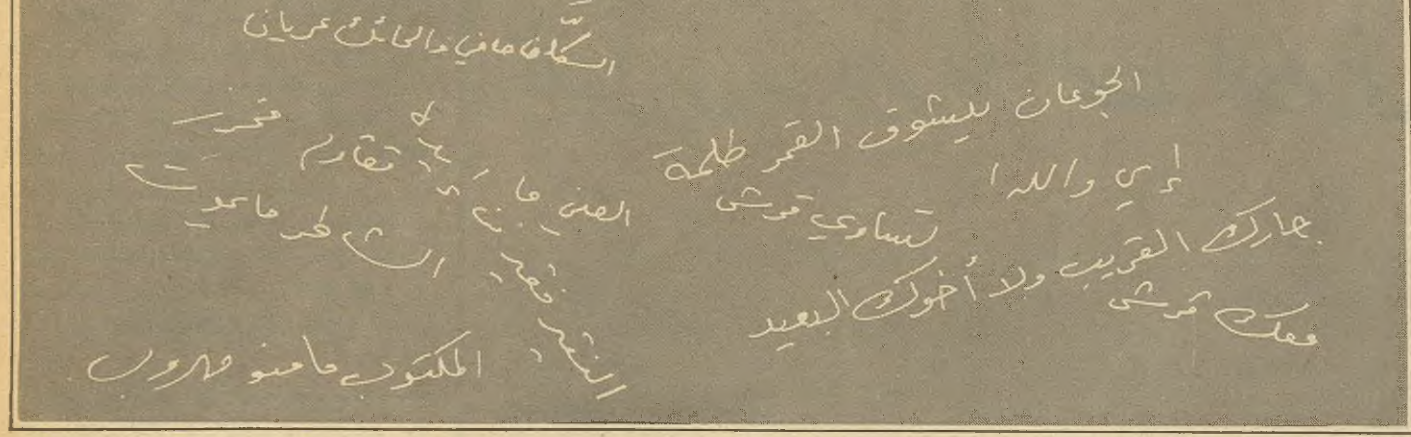 السكّاف حافي والحائك عريان
الجوعان بيشوف القمر طلمة
إي والله!
جارك القريب ولا أخوك البعيد
معك قرش تساوي قرش
الشاطر ما يموت
المكتوب مامنو مهروب